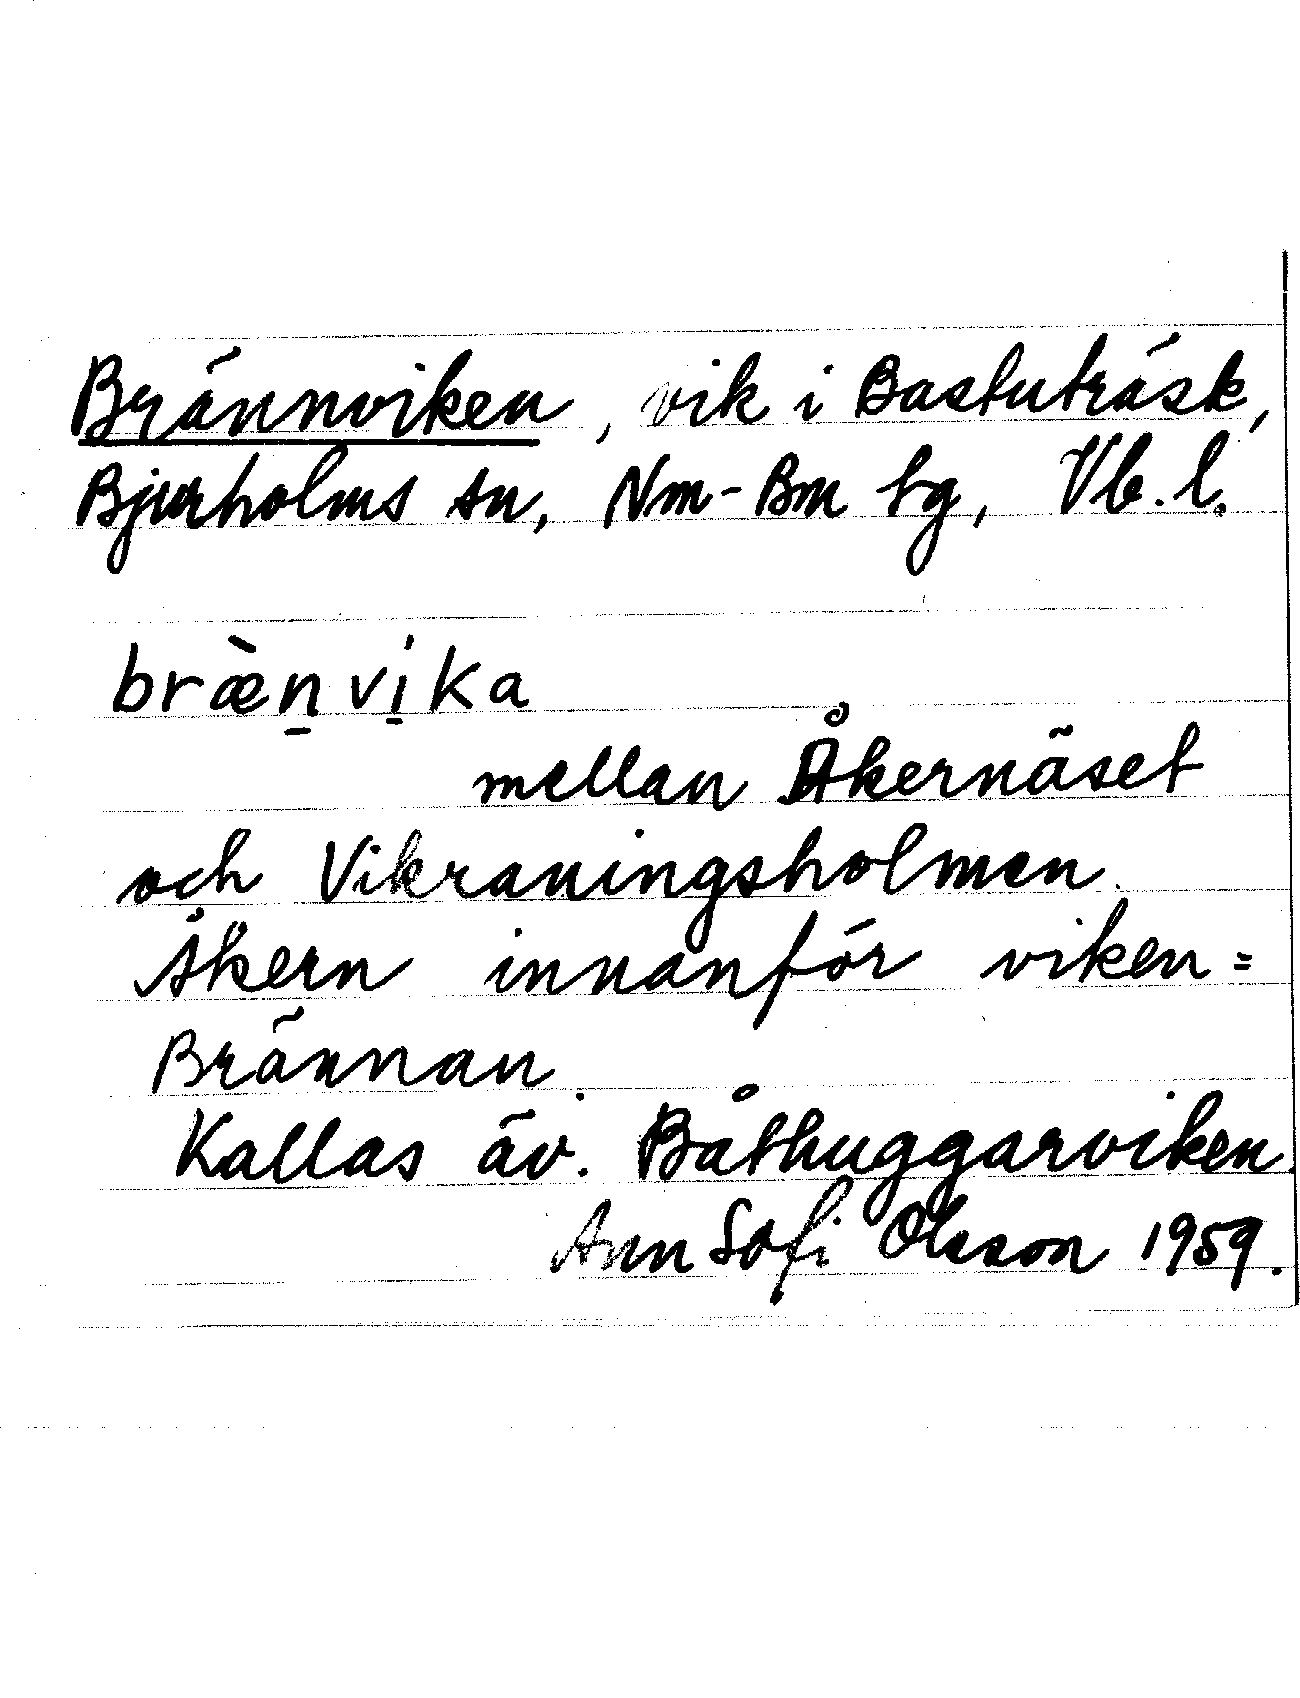 Brännviken, vik i Bastuträsk,
Bjurholms sn, Nm-Bm tg, Vb. l.
bræ̀n̠vi̠ka
mellan Åkernäset
och Vikraningsholmen.
Åkern innanför viken =
Brännan.
Kallas äv. Båthuggarviken.
Ann Sofi Olsson 1959.